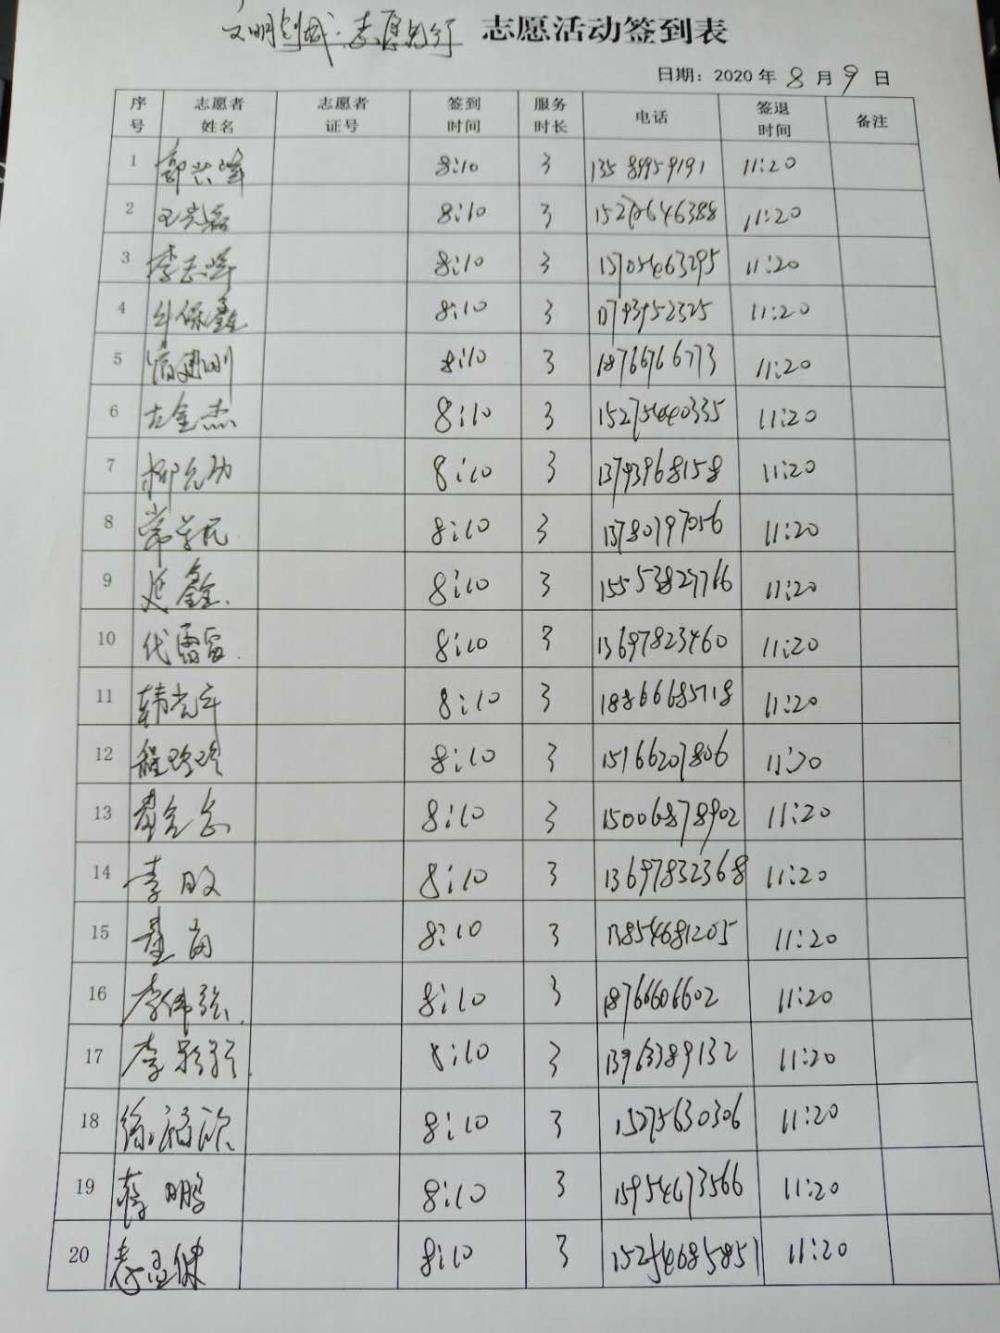 文明创城·志愿先行 志愿活动签到表
日期：2020年8月9日
序号 志愿者姓名 志愿者证号 签到时间 服务时长 电话 签退时间 备注
1 8:10 3 13589959191 11:20
2 王光磊 8:10 3 11:20
3 李志峰 8:10 3 11:20
4 8:10 3 11:20
5 8:10 3 18766766773 11:20
6 古金杰 8:10 3 15275440335 11:20
7 柳允功 8:10 3 13793968158 11:20
8 常学民 8:10 3 13780797056 11:20
9 延鑫 8:10 3 15553827766 11:20
10 代雷雷 8:10 3 13697823460 11:20
11 韩光军 8:10 3 18866685718 11:20
12 程玲玲 8:10 3 15166207806 11:20
13 8:10 3 15006878902 11:20
14 李政 8:10 3 13697832368 11:20
15 8:10 3 13854681205 11:20
16 李伟强 8:10 3 18766606602 11:20
17 李影影 8:10 3 13963389132 11:20
18 徐福欣 8:10 3 15275630306 11:20
19 蒋明鹏 8:10 3 15954673566 11:20
20 8:10 3 15254685851 11:20